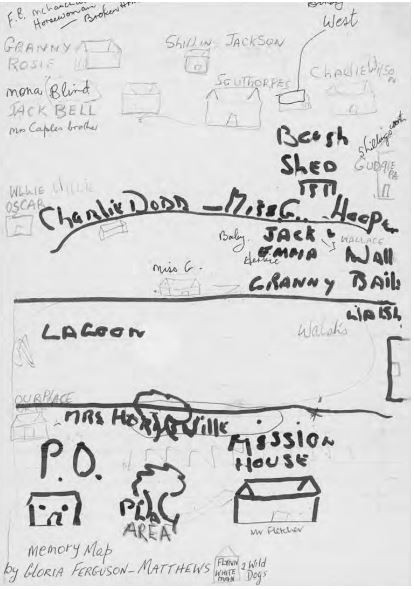 F.B. McLachlan
Horsewoman Broken
West
GRANNY
ROSIE
SHILLIN JACKSON
SOUTHORPES
CHARLIE WILSO
mona Blind
JACK BELL
mrs Caples brother
Beesh
SHED
Shillingsworth
WILLIE WILLIE
OSCAR
CHARLIE DODD - MISS G.. HOOPE
Baby
JACK &
WALLACE
EMMA
WALL
miss G.
GRANNY BAILS
WALSH
LAGOON
Walshs
OUR PLACE
P.O.
MISSION
HOUSE
PLAY
AREA
Mr Fletcher
memory Map
by GLORIA FERGUSON-MATTHEWS
FLYNN
WHITE
MAN
2 Wild
Dogs